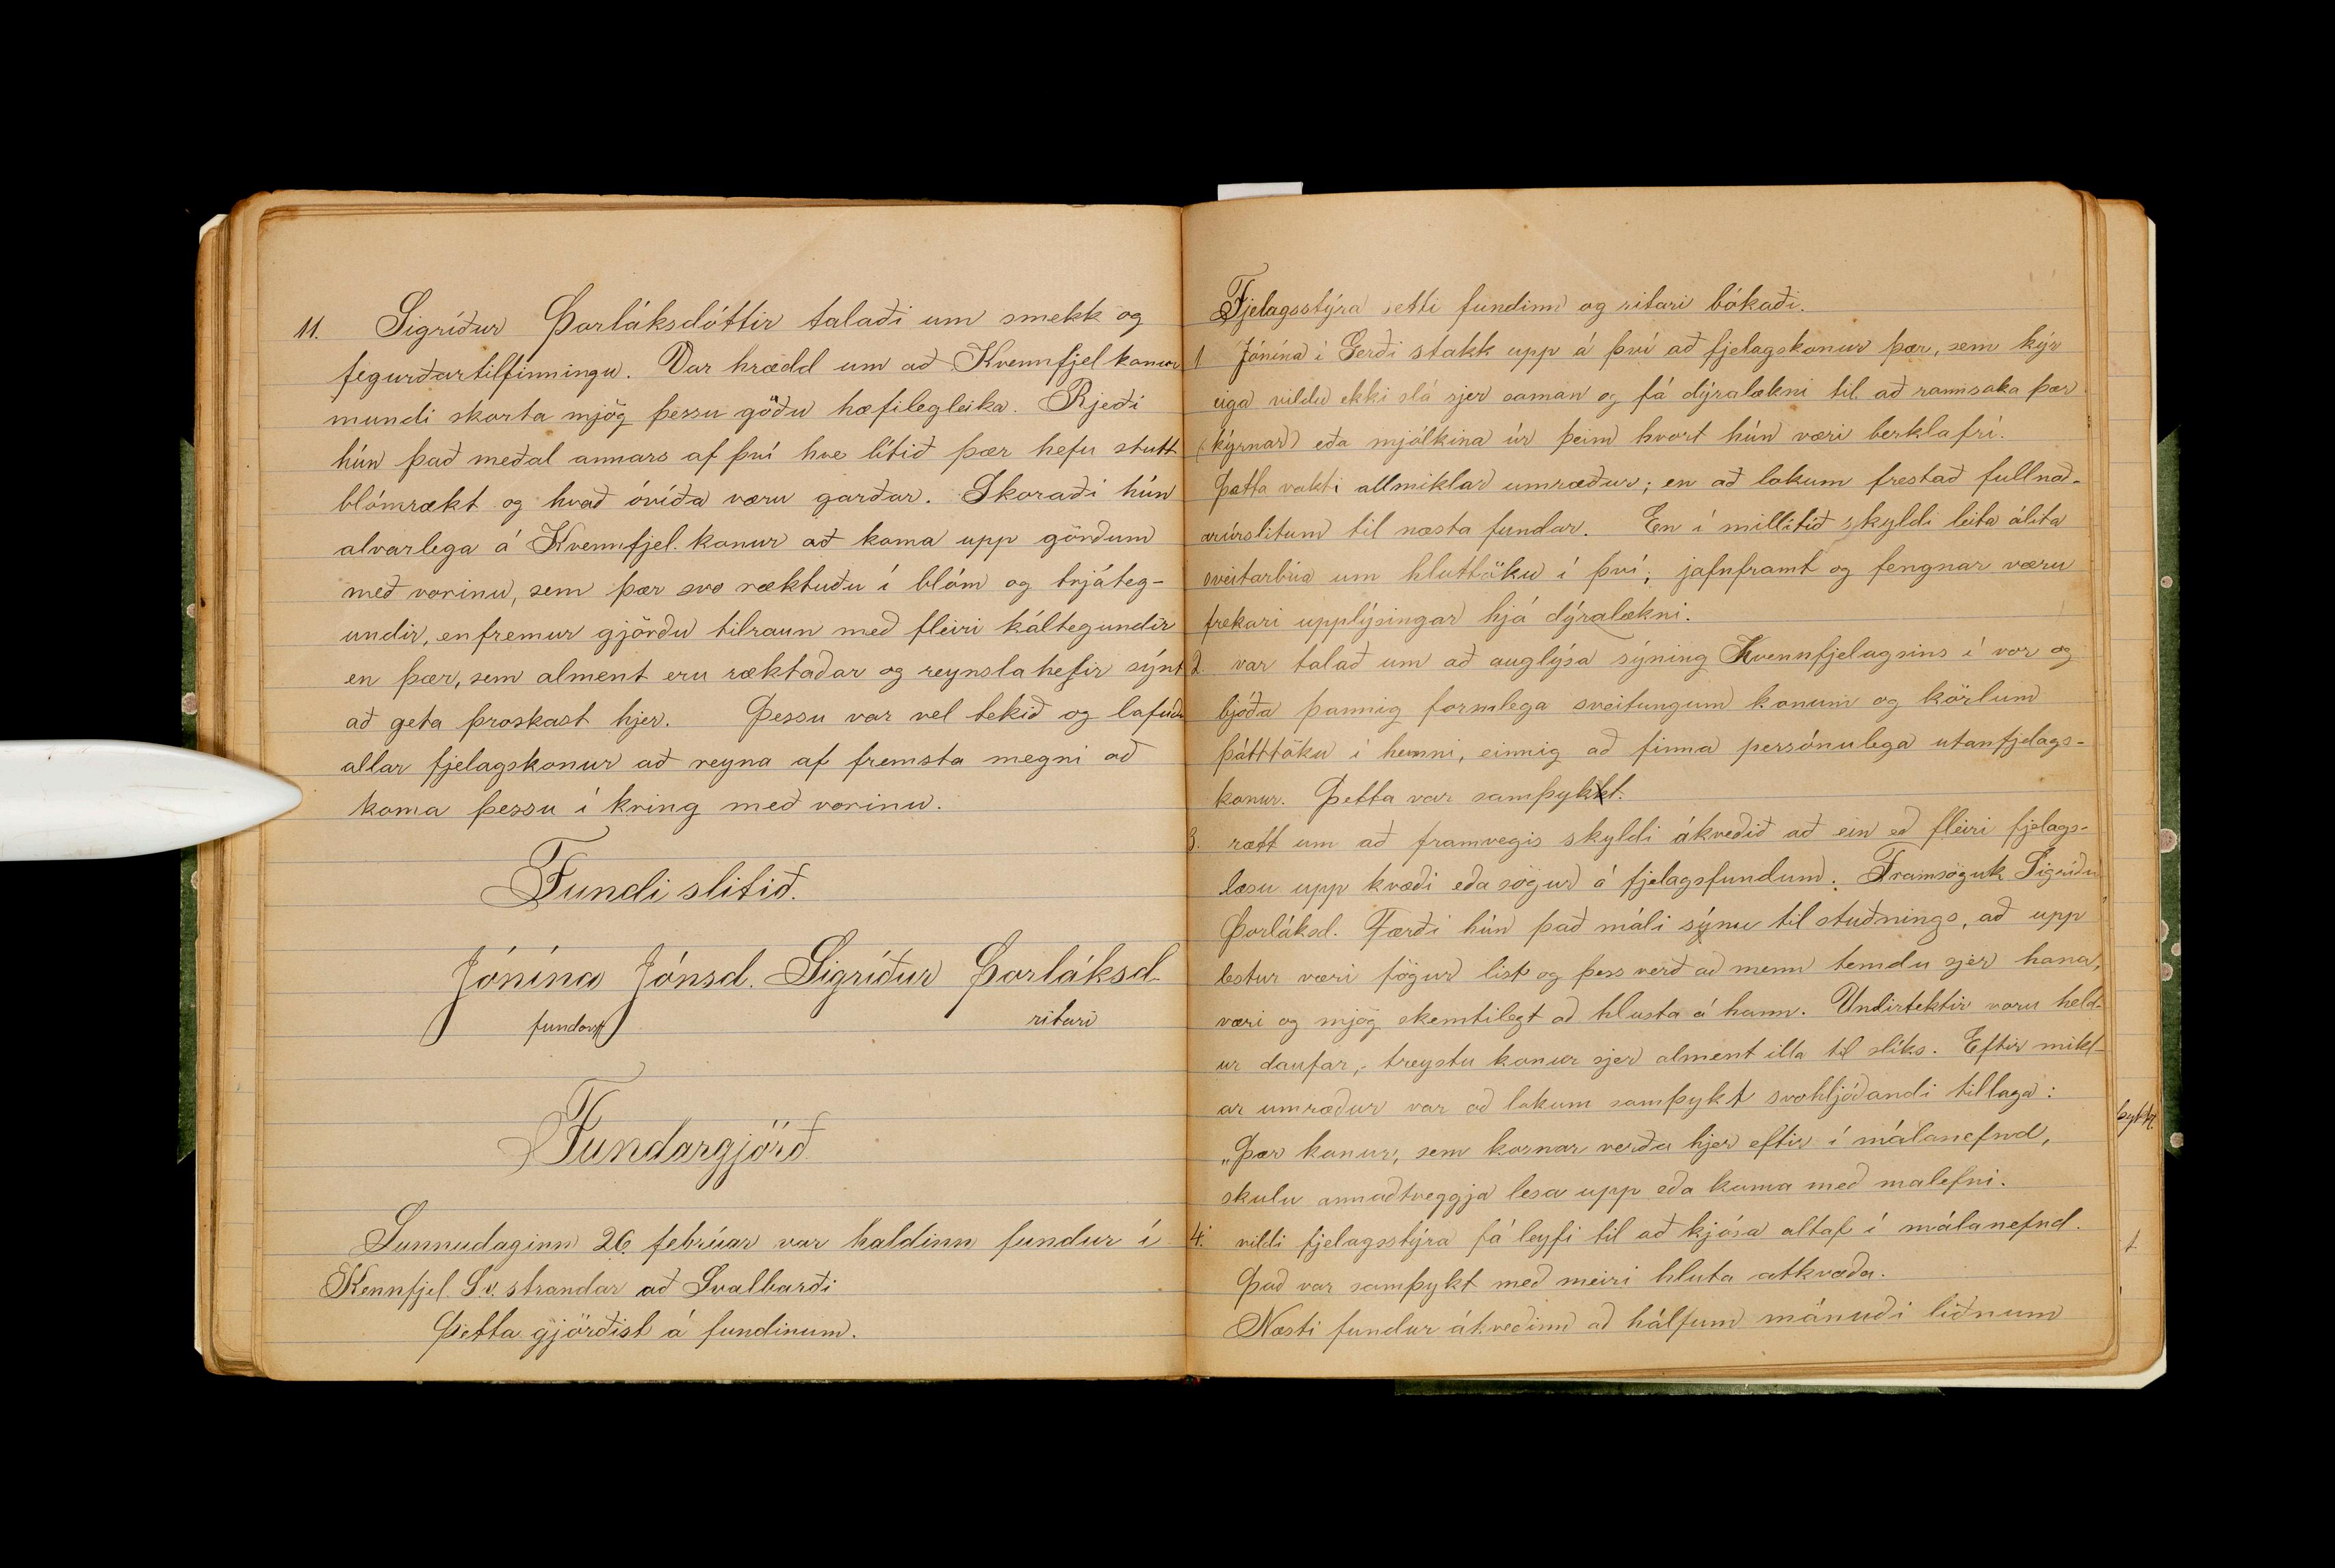 11. Sigríður Þorláksdóttir talaði um smekk og
fegurðartilfinningu. Var hrædd um að Kvennfjel konur
mundi skorta mjög þessu góðu hæfilegleika. Rjeði
hún það meðal annars af því hve lítið þær hefu stutt
blómrækt og hvað óvíða væru garðar. Skoraði hún
alvarlega á Kvennfjel. konur að koma upp görðum
með vorinu, sem þær svo ræktuðu í blóm og trjáteg-
undir, enfremur gjörðu tilraun með fleiri káltegundir
en þær, sem alment eru ræktaðar og reynsla hefir sýnt
að geta þroskast hjer. Þessu var vel tekið og lofuðu
allar fjelagskonur að reyna af fremsta megni að
koma þessu í kring með vorinu.
Fundi slitið.
Jónína Jónsd. Sigríður Þorláksd-
ritari
Fundargjörð
Sunnudaginn 26 febrúar var haldinn fundur í
Kennfjel. S.v. strandar að Svalbarði
Þetta gjörðist á fundinum.
Fjelagsstýra setti fundinn og ritari bókaði.
1 Jónína í Gerði stakk upp á því að fjelagskonur þær, sem kýr
eiga vildu ekki slá sjer saman og fá dýralækni til að rannsaka þær
(kýrnar) eða mjólkina úr þeim hvort hún væri berklafrí.
Þetta vakti allmiklar umræður; en að lokum frestað fullnað-
arúrslitum til næsta fundar. En í millitið skyldi leita álita
sveitarbúa um hluttöku í því; jafnframt og fengnar væru
frekari upplýsingar hjá dýralækni.
2. var talað um að auglýsa sýning Kvennfjelagsins í vor og
bjóða þannig formlega sveitungum konum og körlum
þátttöku í henni, einnig að finna persónulega utanfjelags-
konur. Þetta var samþykt.
3. rætt um að framvegis skyldi ákveðið að ein eð fleiri fjelags-
læsu upp kvæði eða sögur á fjelagsfundum. Framsöguk Sigríður
Þorláksd. Færði hún það máli sýnu til stuðnings, að upp
lestur væri fögur list og þess verð að menn temdu sjer hana,
væri og mjög skemtilegt að hlusta á hann. Undirtektir voru held-
ur daufar, treystu konur sjer alment illa til slíks. Eftir mikl-
ar umræður var að lokum samþykt svohljóðandi tillaga:
„Þær konur, sem kosnar verða hjer eftir í málanefnd,
skulu annaðtveggja lesa upp eða koma með malefni.
4. vildi fjelagsstýra fá leyfi til að kjósa altaf í málanefnd.
Það var samþykt með meiri hluta atkvæða.
Næsti fundur ákveðinn að hálfum mánuði liðnum